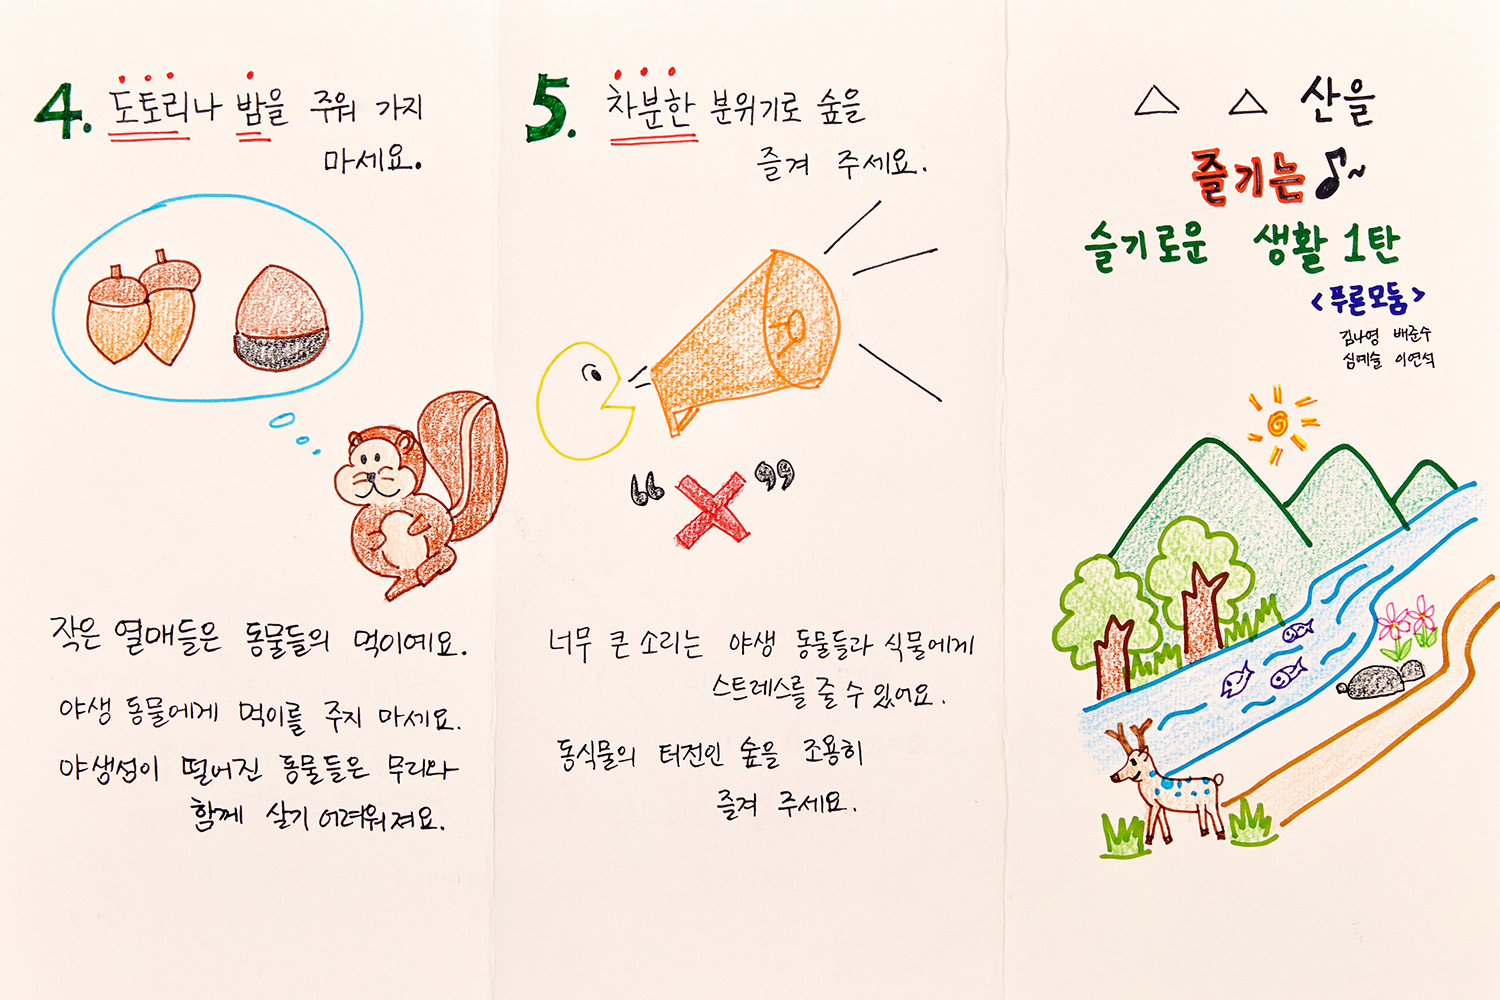 4. 도토리나 밤을 주워 가지
마세요.
작은 열매들은 동물들의 먹이예요.
야생 동물에게 먹이를 주지 마세요.
야생성이 떨어진 동물들은 무리와
함께 살기 어려워져요.
5. 차분한 분위기로 숲을
즐겨 주세요.
“ ”
너무 큰 소리는 야생 동물들과 식물에게
스트레스를 줄 수 있어요.
동식물의 터전인 숲을 조용히
즐겨 주세요.
△ △ 산을
즐기는♪~
슬기로운 생활 1탄
<푸른모둠>
김나영 배준수
심예슬 이연석